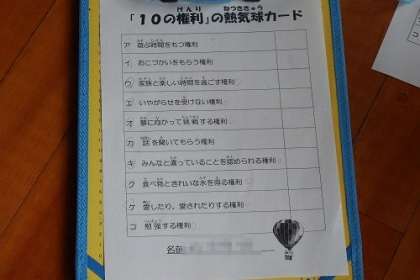 「１０の権利」の熱気球カード
ア 遊ぶ時間をもつ権利
イ おこづかいをもらう権利
ウ 家族と楽しい時間を過ごす権利
エ いやがらせを受けない権利
オ 夢に向かって挑戦する権利
カ 話を聞いてもらう権利
キ みんなと違っていることを認められる権利
ク 食べ物ときれいな水を得る権利
ケ 愛したり、愛されたりする権利
コ 勉強する権利
名前